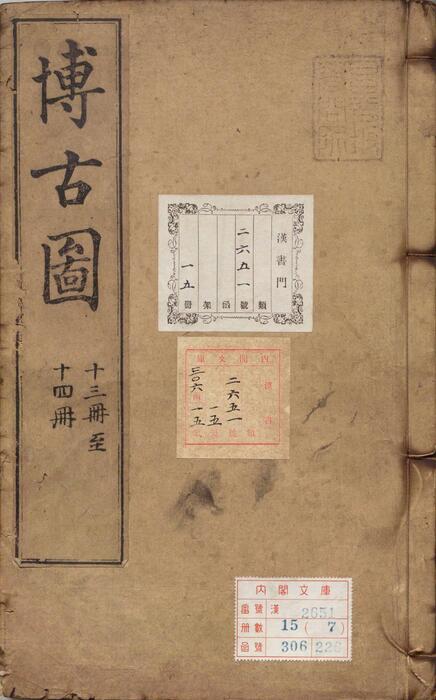 博古圖
十三冊至
十四冊
漢書門
類
二六五一號
函
架
一五冊
內閣文庫
漢書
二六五一
一五
三〇六
一五
內閣文庫
番號 漢 2651
冊數 15 (7)
函號 306